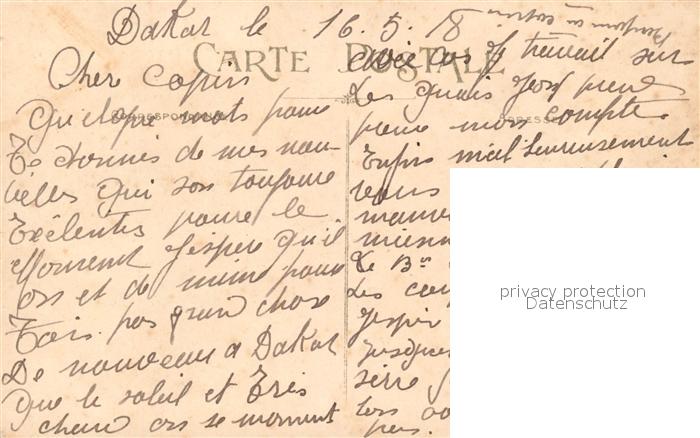 Dakar le 16.5.18
CARTE POSTALE
Cher copin
CORRESPONDANCE
Quelque mots pour
Te donnés de mes nou-
velles qui son toujoure
Exélentes poure le
Moment J'espère qu'il
ors et de même pour
Tois. pas grand chose
De nouveau a Dakar
que le soleil et Trés
chaud ors se moment
avec ces travail sur
Les quais
ADRESSE
poure mon compte.
Enfin malheureusement
vous
mauv
mienn
Le Bn
Les cou
J'espér
Jusque
serre
lors
pas.
privacy protection
Datenschutz